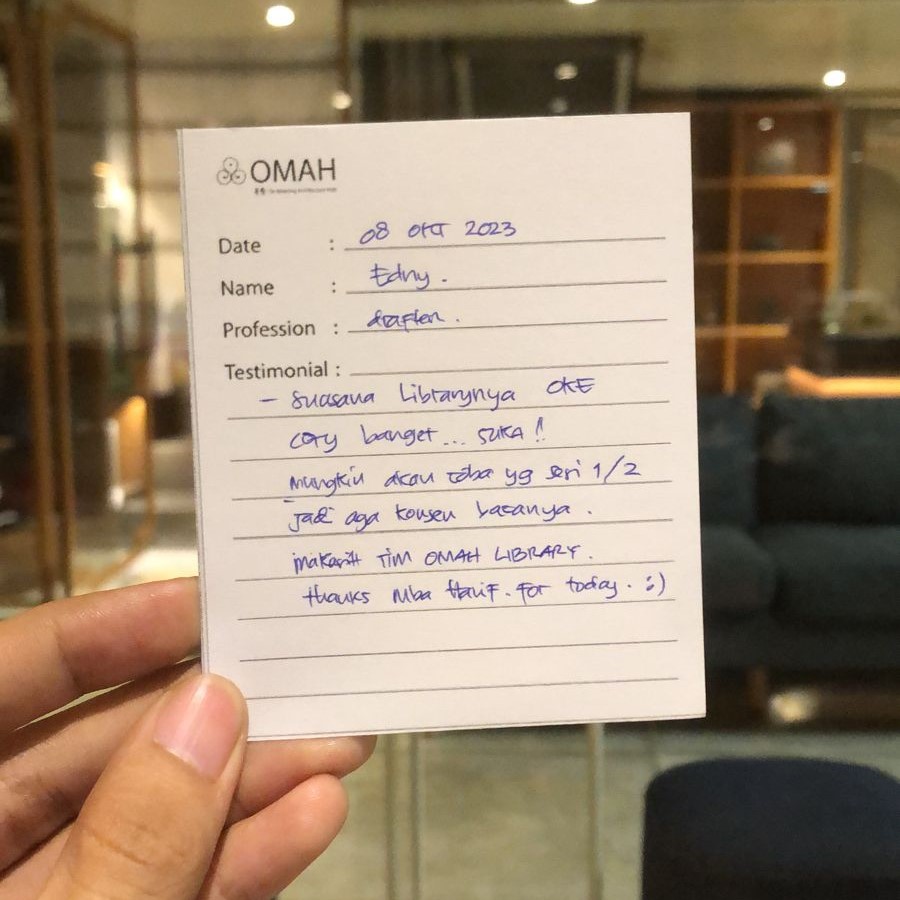 OMAH
Date : 08 OKT 2023
Name : Edny.
Profession : drafter.
Testimonial :
- suasana Librarynya OKE
cozy banget... SUKA!!
mungkin akan coba yg seri 1/2
jadi aga konsen bacanya.
makasih TIM OMAH LIBRARY.
thanks Mba for today. :)